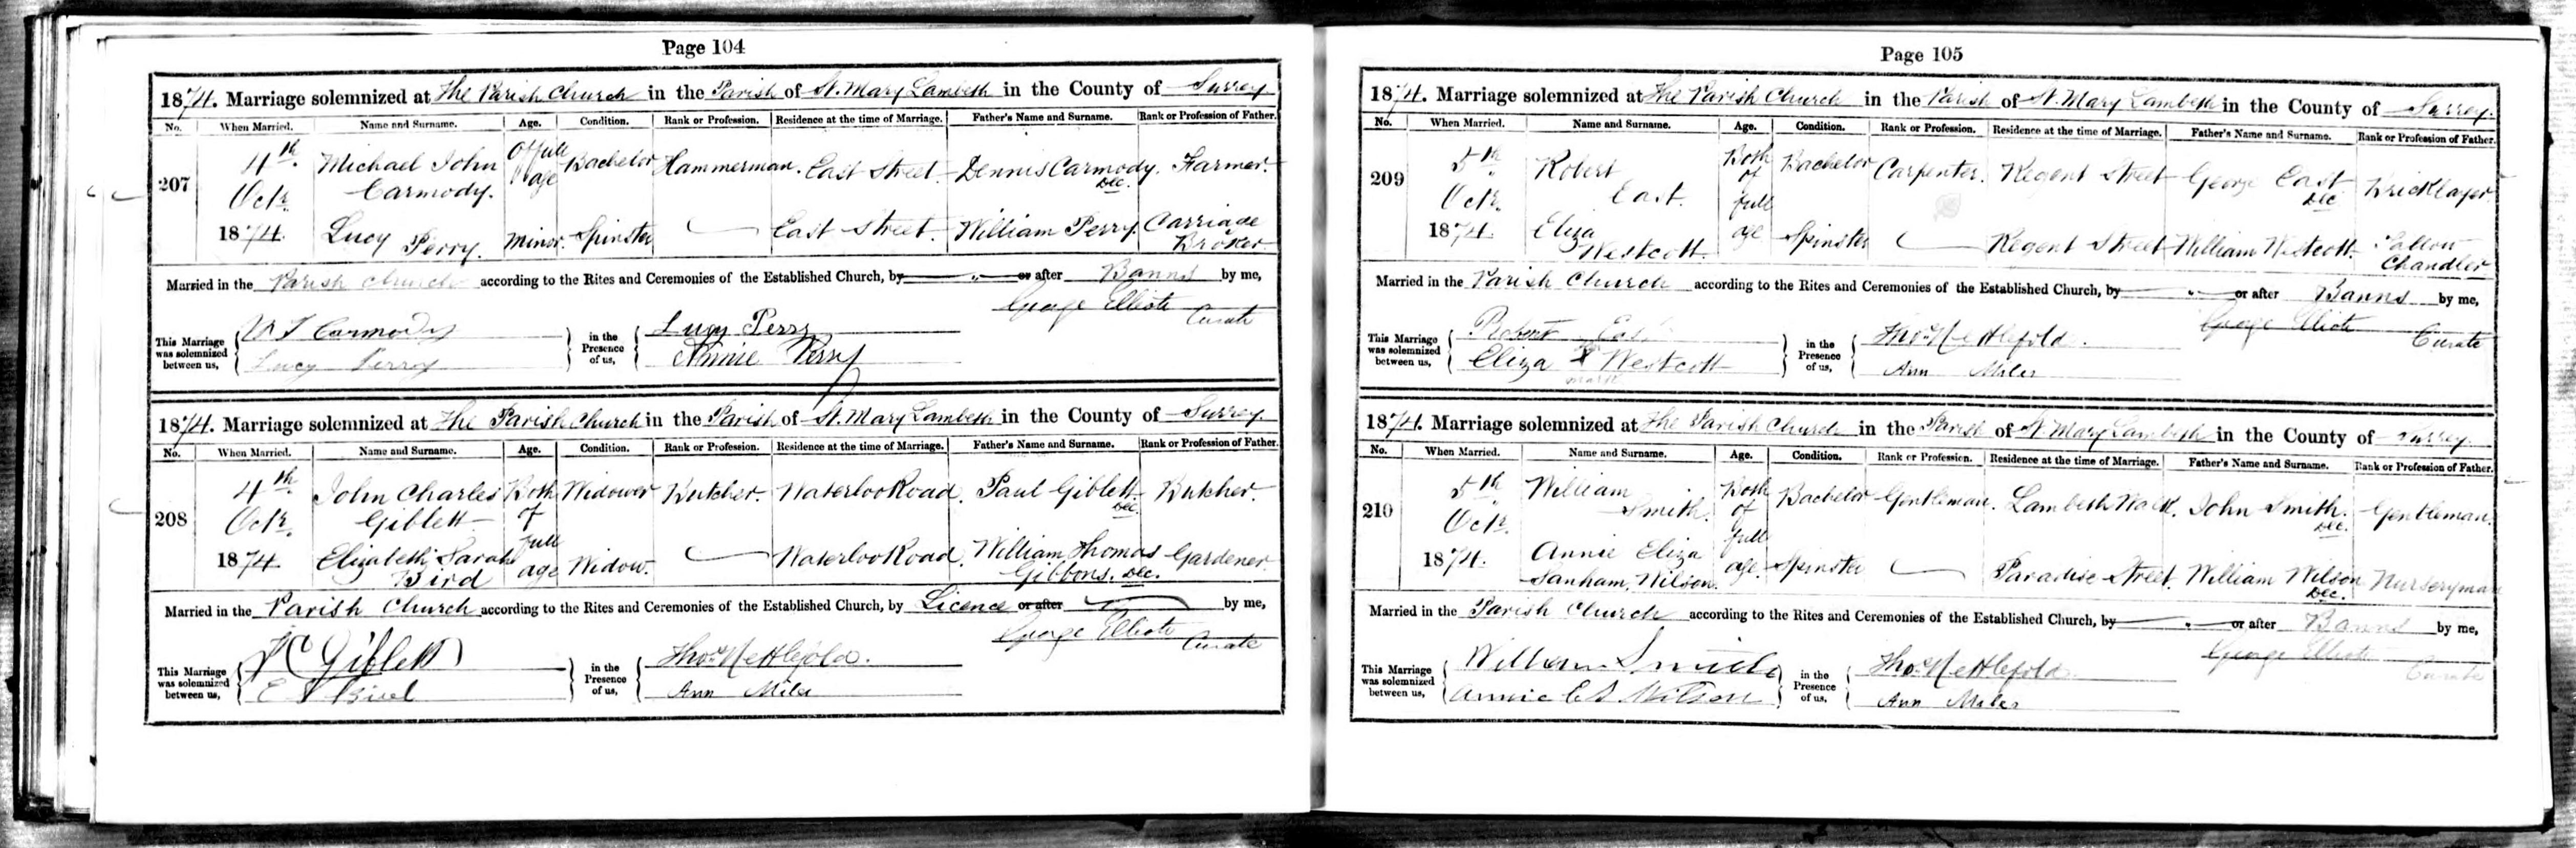 Page 104
1874. Marriage solemnized at The Parish Church in the Parish of St. Mary Lambeth in the County of Surrey
No. When Married. Name and Surname. Age. Condition. Rank or Profession. Residence at the time of Marriage. Father's Name and Surname. Rank or Profession of Father.
207 4th Octr. 1874. Michael John Carmody. Of full age Bachelor Hammerman. East Street. Dennis Carmody. Dec. Farmer.
Lucy Perry. Minor. Spinster East Street. William Perry. Carriage Broker.
Married in the Parish Church according to the Rites and Ceremonies of the Established Church, by or after Banns by me,
George Elliott Curate
This Marriage was solemnized between us, Carmody Lucy Perry in the Presence of us, Lucy Perry Annie Perry
1874. Marriage solemnized at The Parish Church in the Parish of St. Mary Lambeth in the County of Surrey
No. When Married. Name and Surname. Age. Condition. Rank or Profession. Residence at the time of Marriage. Father's Name and Surname. Rank or Profession of Father.
208 4th Octr. 1874. John Charles Giblett Both of full age Widower Butcher. Waterloo Road. Paul Giblett Dec. Butcher.
Elizabeth Sarah Bird Widow. Waterloo Road. William Thomas Gibbons. Dec. Gardener
Married in the Parish Church according to the Rites and Ceremonies of the Established Church, by Licence or after by me,
George Elliott Curate
This Marriage was solemnized between us, J C Giblett E S Bird in the Presence of us, Thos. Nettlefold. Ann Miles
Page 105
1874. Marriage solemnized at The Parish Church in the Parish of St. Mary Lambeth in the County of Surrey.
No. When Married. Name and Surname. Age. Condition. Rank or Profession. Residence at the time of Marriage. Father's Name and Surname. Rank or Profession of Father.
209 5th Octr. 1874. Robert East. Both of full age Bachelor Carpenter. Regent Street George East Dec. Bricklayer
Eliza Westcott. Spinster Regent Street William Westcott. Tallow Chandler
Married in the Parish Church according to the Rites and Ceremonies of the Established Church, by or after Banns by me,
George Elliott Curate
This Marriage was solemnized between us, Robert East Eliza X Westcott mark in the Presence of us, Thos. Nettlefold. Ann Miles
1874. Marriage solemnized at The Parish Church in the Parish of St. Mary Lambeth in the County of Surrey.
No. When Married. Name and Surname. Age. Condition. Rank or Profession. Residence at the time of Marriage. Father's Name and Surname. Rank or Profession of Father.
210 5th Octr. 1874. William Smith. Both of full age. Bachelor Gentleman. Lambeth Walk. John Smith. Dec. Gentleman.
Annie Eliza Sanham Wilson. Spinster Paradise Street. William Wilson Dec. Nurseryman
Married in the Parish Church according to the Rites and Ceremonies of the Established Church, by or after Banns by me,
George Elliott Curate
This Marriage was solemnized between us, William Smith Annie E S Wilson in the Presence of us, Thos. Nettlefold. Ann Miles